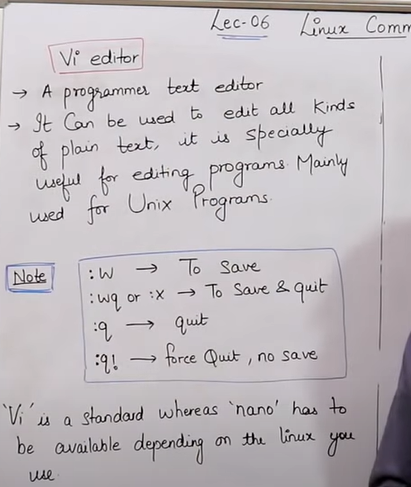 Lec-06 Linux Comm
Vi editor
→ A programmer text editor
→ It Can be used to edit all kinds
of plain text, it is specially
useful for editing programs. Mainly
used for Unix Programs.
Note
:w → To Save
:wq or :x → To Save & quit
:q → quit
:q! → force Quit, no save
'Vi' is a standard whereas 'nano' has to
be available depending on the linux you
use.